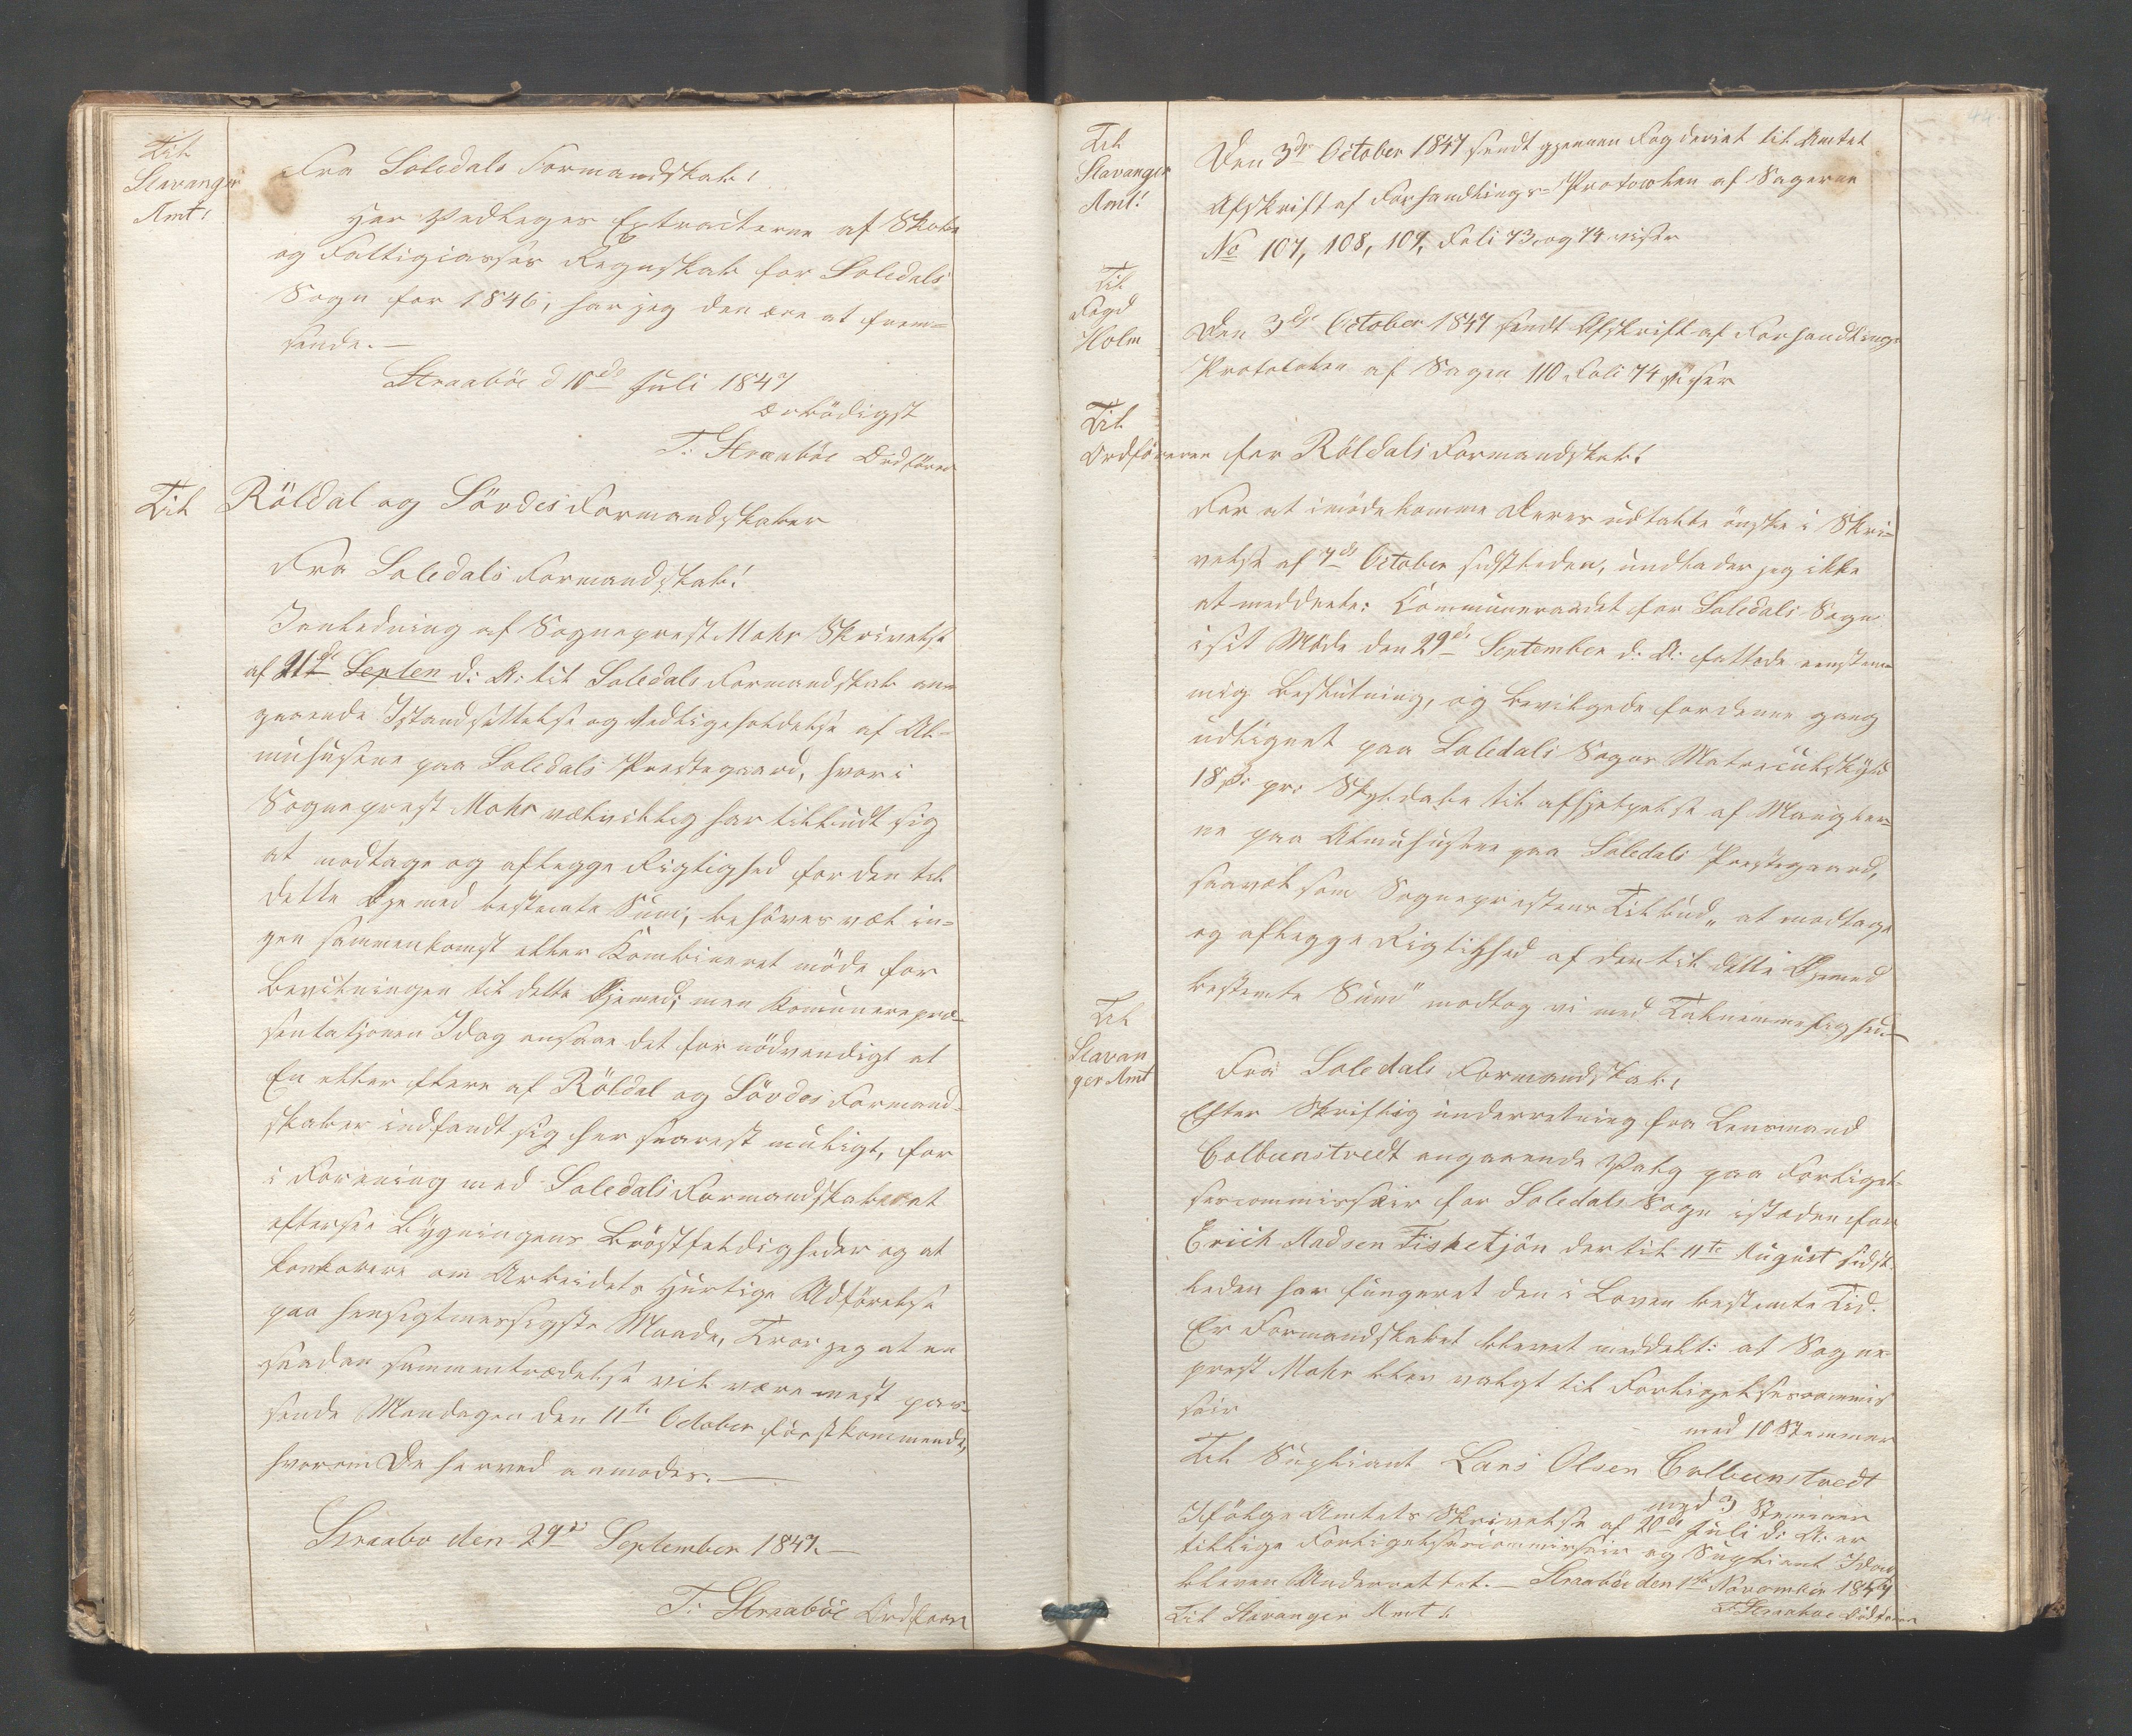 Til
Stavanger
Amt!
Fra Soledals Formandskab!
Her Vedlegges Extracterne af Skole
og Fattigcasses Regnskab for Soledals
Sogn for 1846, har jeg den ære at frem=
sende.—
Straaböe d 10de Juli 1847
ærbödigst
T. Straaböe Ordförer
Til Röldal og Sövdes Formandskaber
Fra Soledals Formandskab!
Ianledning af Sogneprest Mohr Skrivelse
af 21de Septen d: A: til Soledals Formandskab ann
gaaende Istandsettelse og Vedligeholdelse af Al=
muhusene paa Soledals Prestegaard, hvori
Sogneprest Mohr velvillig har tilbudt sig
at modtage og aflegge Rigtighed for den til
dette Öjemed bestemte Sum; behöves vel in=
gen sammenkomst eller Kombineret möde for
Bevilningen til dette Öjemed; men Komunerepræ=
sentasjonen Idag ansaae det for nödvendigt at
En eller flere af Röldal og Sövdes Formand=
skaber indfandt sig her snarest muligt, for
i Forening med Soledals Formandskaberat
eftersee Bygningens Bröstfeldigheder og at
konkorere om Arbeidets hurtige Udförelse
paa hensigtmessigste Maade, Tror jeg at en
saadan sammentrædelse vil være mest pas=
sende Mondagen den 11te October förstkommende,
hvorom De herved anmodes.—
Straabo den 29de September 1847.—
T. Straaböe Ordförer
Til
Stavanger
Amt!
Den 3de October 1847 sendt gjennem Fogderiet til Amtet
Afskrift af Forhandlings=Protocollen af Sagerne
No 107, 108, 109, Foli 73 og 74 viser
Til
Fogd
Holm
Den 3de October 1847 sendt Afskrift af Forhandlings
Protocollen af Sagen 110 Foli 74 viser
Til
Ordföreren for Röldals Formandskab!
For at imödekomme Deres udtalte önske i Skri=
velse af 7de October sidstleden, undlader jeg ikke
at meddeele: Communeraadet for Soledals Sogn
i sit Möde den 29de September d: A: fattede eenstem
mig Beslutning, og bevilgede for denne gang
udlignet paa Soledals Sogns Matricülskÿld
18 ß: pr: Skyldaler til afhjelpelse af Mangler=
ne paa Almuhusene paa Soledals Prestegaard,
saavel som Sogneprestens Tilbud „at modtage
og aflegge Rigtighed af den til dette Öjemed
bestemte Sum" modtog vi med Taknemmelighed.—
Til
Stavan
ger Amt
Fra Soledals Formandskab!
Efter Skriftlig underretning fra Lensmand
Colbeenstvedt angaaende Valg paa Forligel=
sescommissair for Soledals Sogn isteden for
Erich Madsen Fisketjön der til 11te August sidst=
leden har fungeret den i Loven bestemte Tid.
Er Formandskabet blevet meddelt: at Sogne=
prest Mohr blev valgt til Forligelsescommis
sair
med 10 Stemmer
Til Supliant Lars Olsen Colbeenstvedt
med 3 Stemmer
Ifölge Amtets Skrivelse af 20de Juli d: A: er
tillige Forligelsescommissair og Supliant Idag
bleven Underrettet.— Straaböe den 1ste November 1847
Til Stavanger Amt!
T Straaboe Ordförer